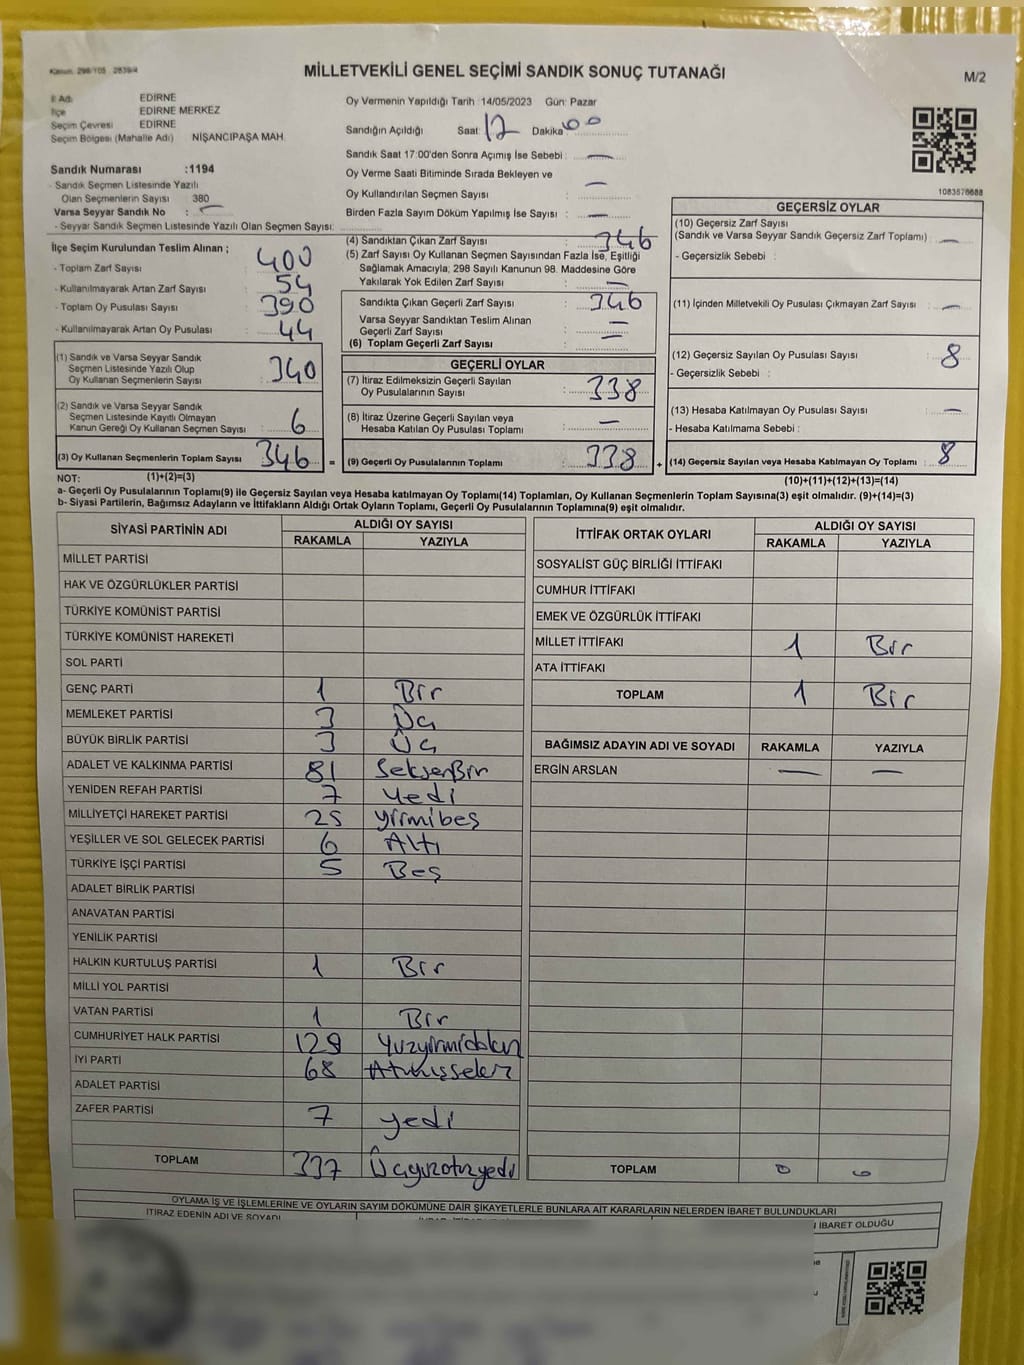 Kanun: 298/105 2839/4
MİLLETVEKİLİ GENEL SEÇİMİ SANDIK SONUÇ TUTANAĞI
M/2
İl Adı EDİRNE
İlçe EDİRNE MERKEZ
Seçim Çevresi EDİRNE
Seçim Bölgesi (Mahalle Adı) NİŞANCIPAŞA MAH.
Sandık Numarası :1194
- Sandık Seçmen Listesinde Yazılı
Olan Seçmenlerin Sayısı 380
Varsa Seyyar Sandık No : —
- Seyyar Sandık Seçmen Listesinde Yazılı Olan Seçmen Sayısı:
Oy Vermenin Yapıldığı Tarih :14/05/2023 Gün: Pazar
Sandığın Açıldığı Saat: 17 Dakika 00
Sandık Saat 17:00'den Sonra Açımış İse Sebebi : —
Oy Verme Saati Bitiminde Sırada Bekleyen ve
Oy Kullandırılan Seçmen Sayısı : —
Birden Fazla Sayım Döküm Yapılmış İse Sayısı : —
1083576688
İlçe Seçim Kurulundan Teslim Alınan ;
- Toplam Zarf Sayısı : 400
- Kullanılmayarak Artan Zarf Sayısı : 54
- Toplam Oy Pusulası Sayısı : 390
- Kullanılmayarak Artan Oy Pusulası : 44
(1) Sandık ve Varsa Seyyar Sandık
Seçmen Listesinde Yazılı Olup
Oy Kullanan Seçmenlerin Sayısı : 340
(2) Sandık ve Varsa Seyyar Sandık
Seçmen Listesinde Kayıtlı Olmayan
Kanun Gereği Oy Kullanan Seçmen Sayısı : 6
(3) Oy Kullanan Seçmenlerin Toplam Sayısı 346 =
(4) Sandıktan Çıkan Zarf Sayısı : 346
(5) Zarf Sayısı Oy Kullanan Seçmen Sayısından Fazla İse, Eşitliği
Sağlamak Amacıyla; 298 Sayılı Kanunun 98. Maddesine Göre
Yakılarak Yok Edilen Zarf Sayısı : —
Sandıkta Çıkan Geçerli Zarf Sayısı : 346
Varsa Seyyar Sandıktan Teslim Alınan
Geçerli Zarf Sayısı : —
(6) Toplam Geçerli Zarf Sayısı : —
GEÇERLİ OYLAR
(7) İtiraz Edilmeksizin Geçerli Sayılan
Oy Pusulalarının Sayısı : 338
(8) İtiraz Üzerine Geçerli Sayılan veya
Hesaba Katılan Oy Pusulası Toplamı : —
(9) Geçerli Oy Pusulalarının Toplamı : 338 +
GEÇERSİZ OYLAR
(10) Geçersiz Zarf Sayısı
(Sandık ve Varsa Seyyar Sandık Geçersiz Zarf Toplamı) : —
- Geçersizlik Sebebi :
(11) İçinden Milletvekili Oy Pusulası Çıkmayan Zarf Sayısı : —
(12) Geçersiz Sayılan Oy Pusulası Sayısı : 8
- Geçersizlik Sebebi :
(13) Hesaba Katılmayan Oy Pusulası Sayısı : —
- Hesaba Katılmama Sebebi :
(14) Geçersiz Sayılan veya Hesaba Katılmayan Oy Toplamı : 8
NOT: (1)+(2)=(3) (10)+(11)+(12)+(13)=(14)
a- Geçerli Oy Pusulalarının Toplamı(9) ile Geçersiz Sayılan veya Hesaba katılmayan Oy Toplamı(14) Toplamları, Oy Kullanan Seçmenlerin Toplam Sayısına(3) eşit olmalıdır. (9)+(14)=(3)
b- Siyasi Partilerin, Bağımsız Adayların ve İttifakların Aldığı Ortak Oyların Toplamı, Geçerli Oy Pusulalarının Toplamına(9) eşit olmalıdır.
SİYASİ PARTİNİN ADI ALDIĞI OY SAYISI
RAKAMLA YAZIYLA
MİLLET PARTİSİ
HAK VE ÖZGÜRLÜKLER PARTİSİ
TÜRKİYE KOMÜNİST PARTİSİ
TÜRKİYE KOMÜNİST HAREKETİ
SOL PARTİ
GENÇ PARTİ 1 Bir
MEMLEKET PARTİSİ 3 Üç
BÜYÜK BİRLİK PARTİSİ 3 Üç
ADALET VE KALKINMA PARTİSİ 81 SeksenBir
YENİDEN REFAH PARTİSİ 7 yedi
MİLLİYETÇİ HAREKET PARTİSİ 25 yirmibeş
YEŞİLLER VE SOL GELECEK PARTİSİ 6 Altı
TÜRKİYE İŞÇİ PARTİSİ 5 Beş
ADALET BİRLİK PARTİSİ
ANAVATAN PARTİSİ
YENİLİK PARTİSİ
HALKIN KURTULUŞ PARTİSİ 1 Bir
MİLLİ YOL PARTİSİ
VATAN PARTİSİ 1 Bir
CUMHURİYET HALK PARTİSİ 129 Yuzyirmidokuz
İYİ PARTİ 68 Atmışsekiz
ADALET PARTİSİ
ZAFER PARTİSİ 7 yedi
TOPLAM 337 Üçyüzotuzyedi
İTTİFAK ORTAK OYLARI ALDIĞI OY SAYISI
RAKAMLA YAZIYLA
SOSYALİST GÜÇ BİRLİĞİ İTTİFAKI
CUMHUR İTTİFAKI
EMEK VE ÖZGÜRLÜK İTTİFAKI
MİLLET İTTİFAKI 1 Bir
ATA İTTİFAKI
TOPLAM 1 Bir
BAĞIMSIZ ADAYIN ADI VE SOYADI RAKAMLA YAZIYLA
ERGİN ARSLAN — —
TOPLAM 0 0
OYLAMA İŞ VE İŞLEMLERİNE VE OYLARIN SAYIM DÖKÜMÜNE DAİR ŞİKAYETLERLE BUNLARA AİT KARARLARIN NELERDEN İBARET BULUNDUKLARI
İTİRAZ EDENİN ADI VE SOYADI
İBARET OLDUĞU